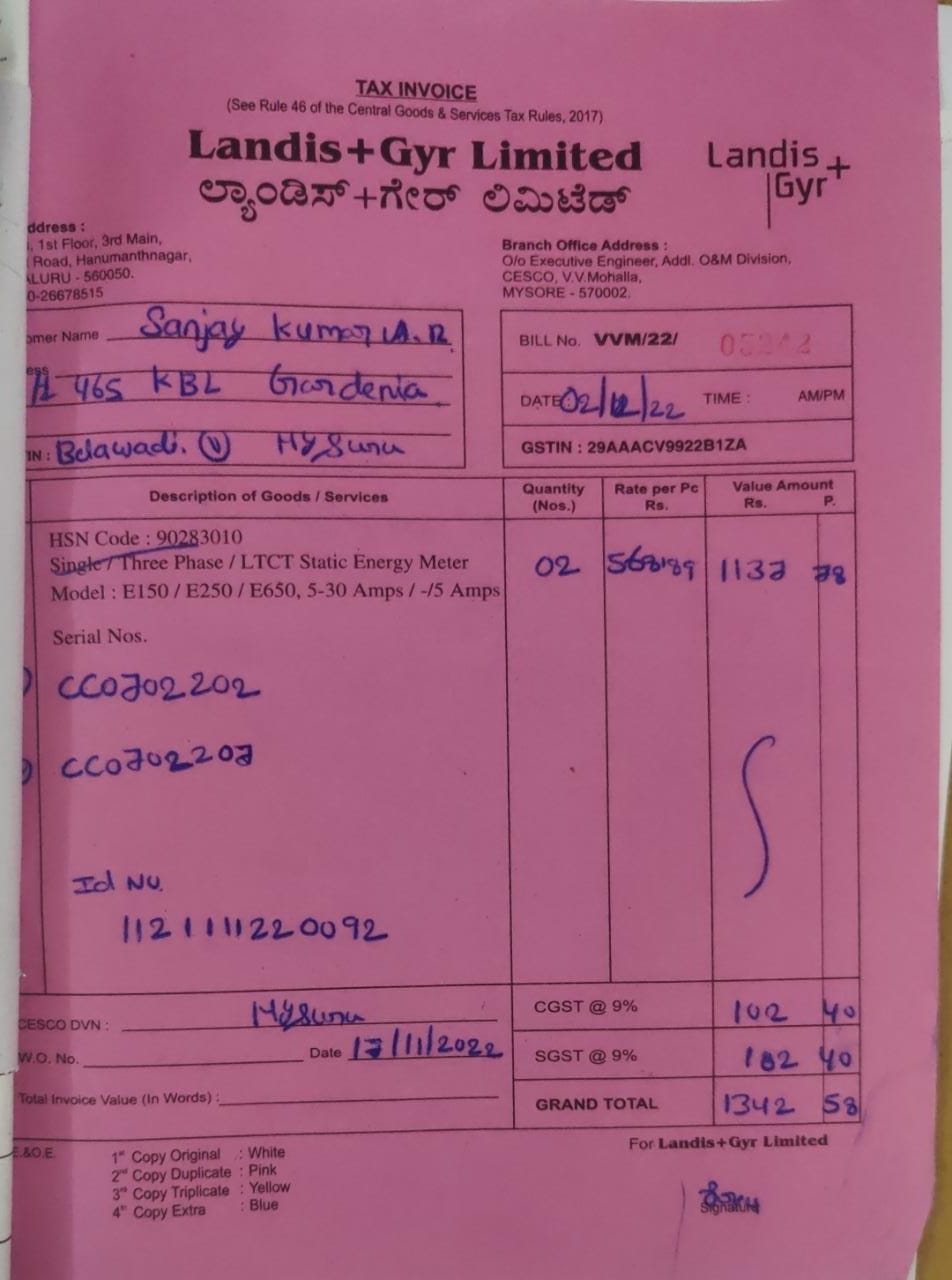 TAX INVOICE
(See Rule 46 of the Central Goods & Services Tax Rules, 2017)
Landis+Gyr Limited
ಲ್ಯಾಂಡಿಸ್+ಗೇರ್ ಲಿಮಿಟೆಡ್
Landis+
Gyr
ddress :
, 1st Floor, 3rd Main,
Road, Hanumanthnagar,
ALURU - 560050.
0-26678515
Branch Office Address :
O/o Executive Engineer, Addl. O&M Division,
CESCO, V.V.Mohalla,
MYSORE - 570002.
omer Name Sanjay Kumar A.R.
ess 465 KBL Gardenia
IN : Belawadi. (V) Mysuru
BILL No. VVM/22/ 05242
DATE 02/12/22 TIME : AM/PM
GSTIN : 29AAACV9922B1ZA
Description of Goods / Services Quantity (Nos.) Rate per Pc Rs. Value Amount Rs. P.
HSN Code : 90283010
Single / Three Phase / LTCT Static Energy Meter 02 568.89 1137 78
Model : E150 / E250 / E650, 5-30 Amps / -/5 Amps
Serial Nos.
CC0702202
CC0702207
Id No.
1121111220092
CESCO DVN : Mysuru
W.O. No. Date 17/11/2022
Total Invoice Value (In Words) :
CGST @ 9% 102 40
SGST @ 9% 102 40
GRAND TOTAL 1342 58
E.&O.E.
1st Copy Original : White
2nd Copy Duplicate : Pink
3rd Copy Triplicate : Yellow
4th Copy Extra : Blue
For Landis+Gyr Limited
Signature